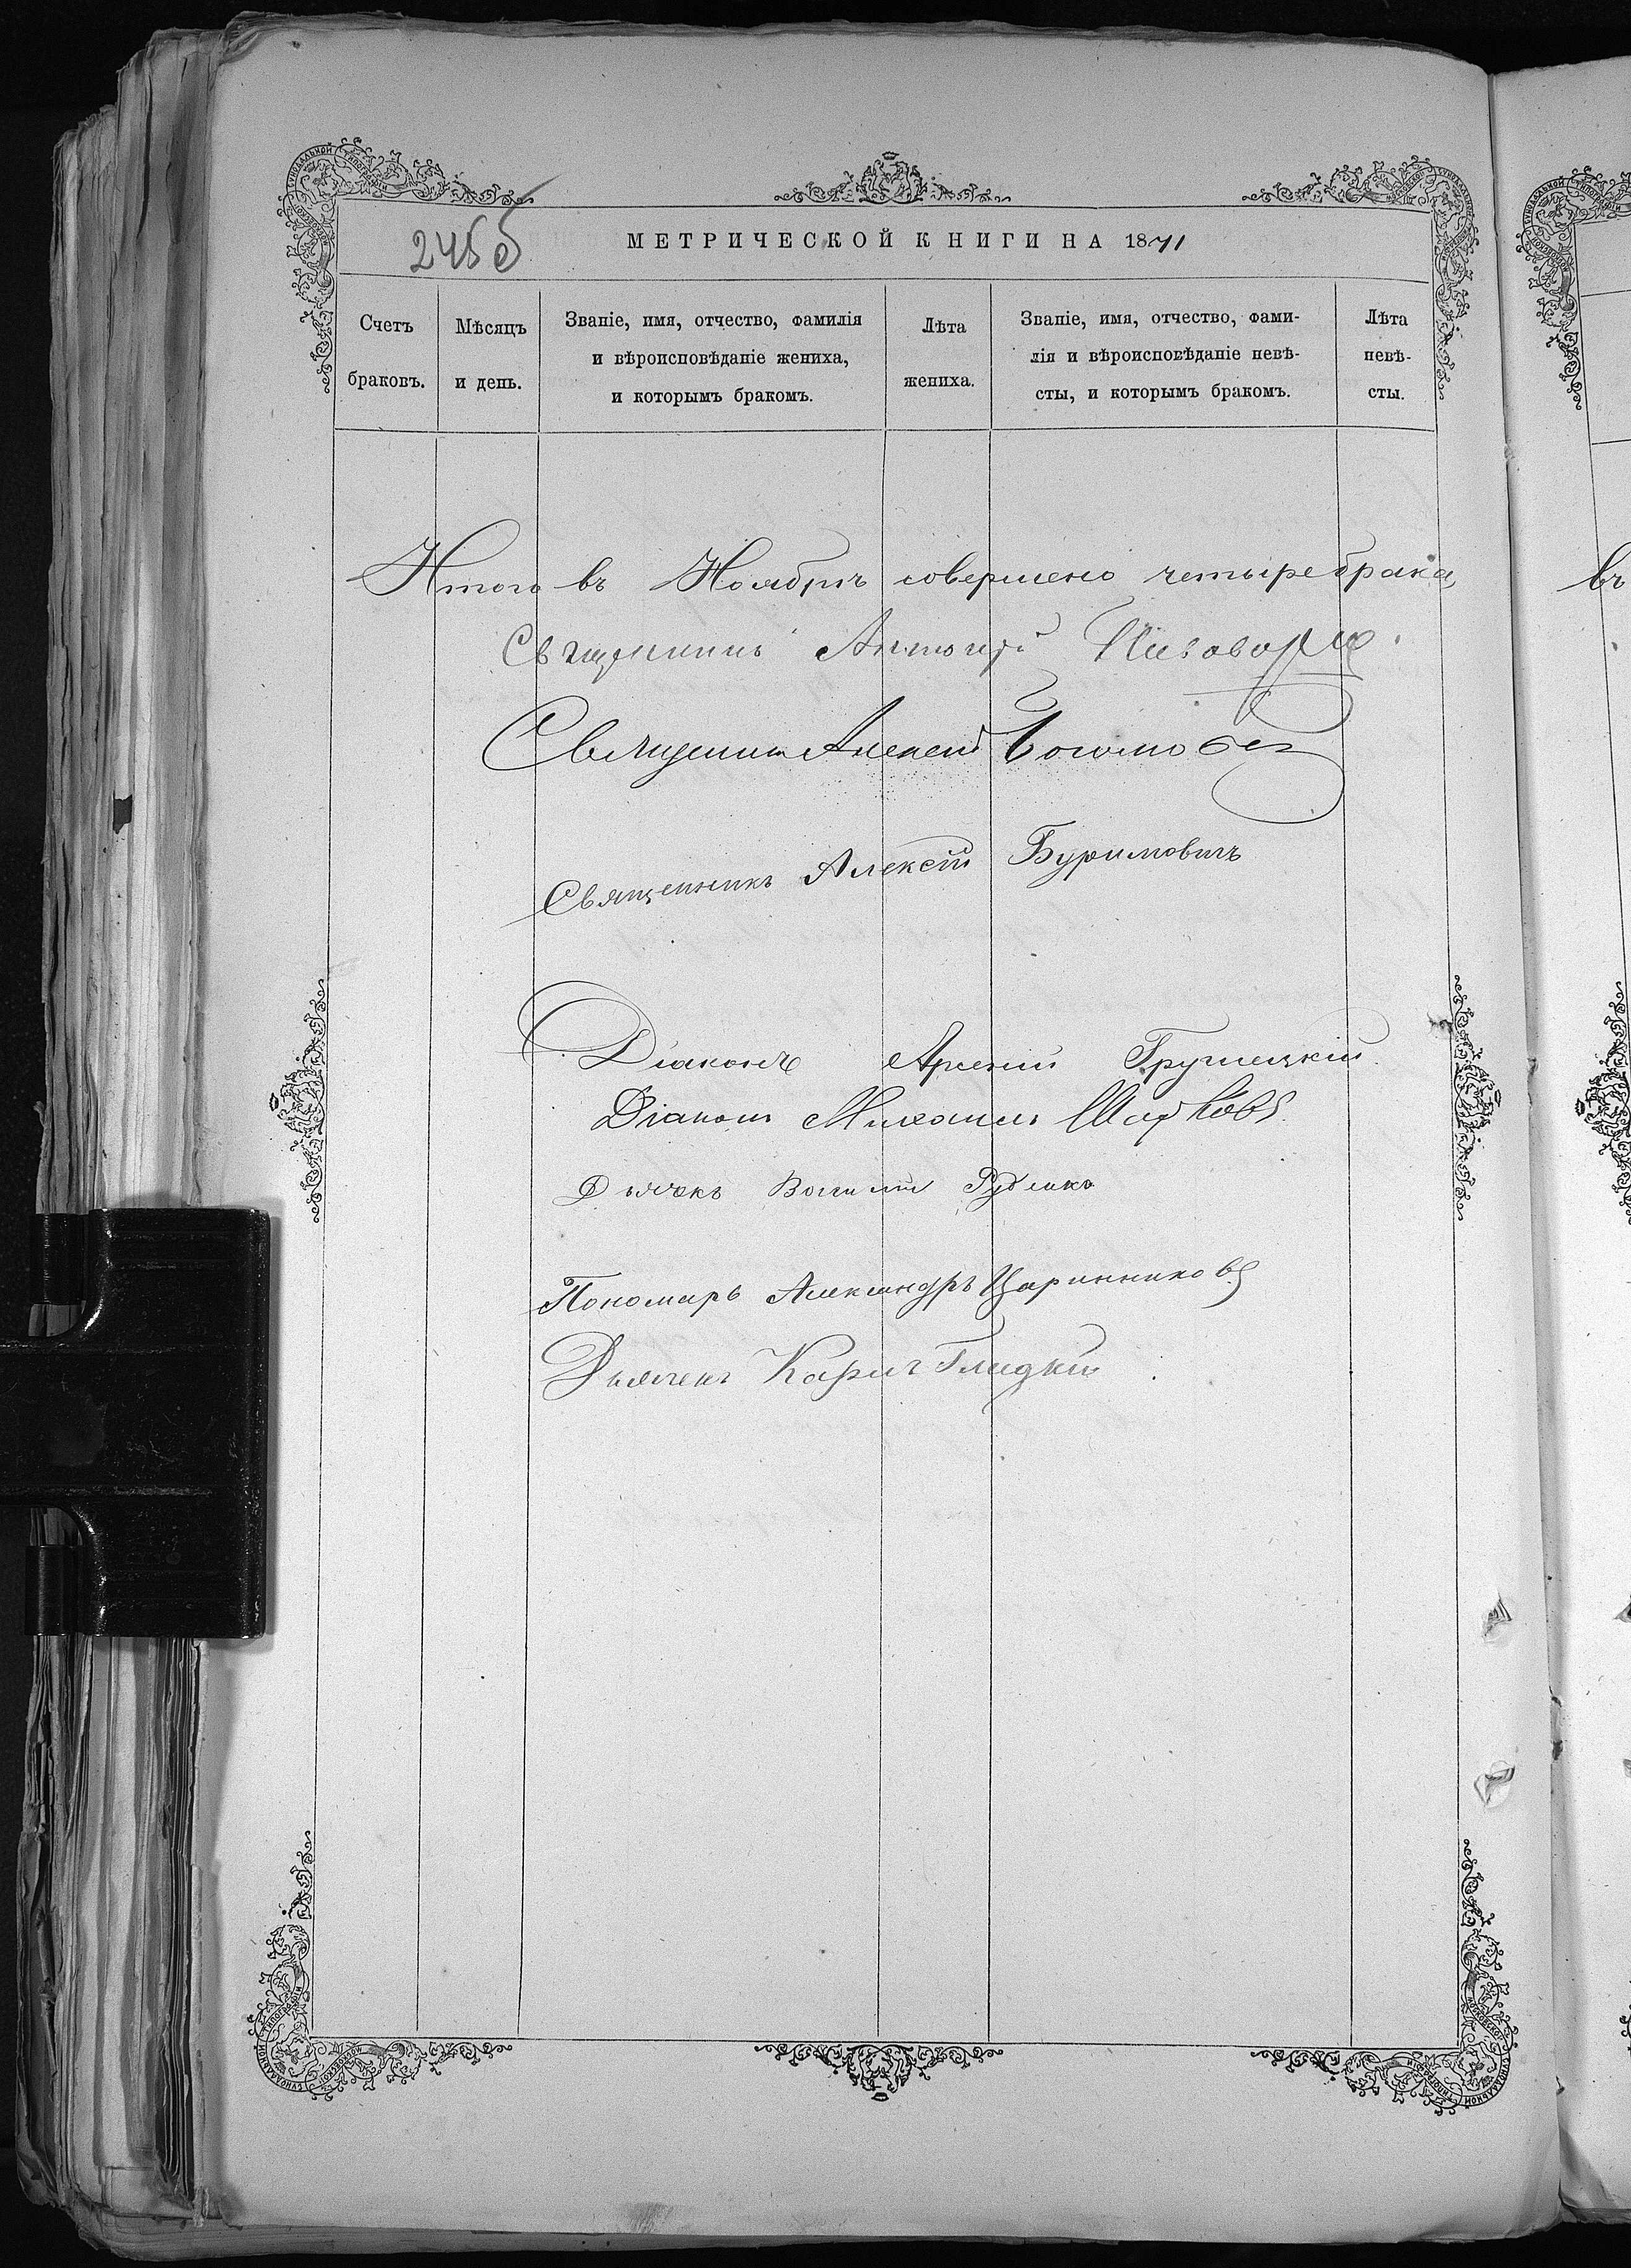 245об
МЕТРИЧЕСКОЙ КНИГИ НА 1871
Счетъ браковъ.
Мѣсяцъ и день.
Званіе, имя, отчество, фамилія
и вѣроисповѣданіе жениха,
и которымъ бракомъ.
Лѣта жениха.
Званіе, имя, отчество, фами-
лія и вѣроисповѣданіе невѣ-
сты, и которымъ бракомъ.
Лѣта
невѣ-
сты.
Итого въ Ноябрѣ совершено четыре брака
Священникъ Антоній
Священникъ Алексій
Священникъ Алексій Буримовичъ
Діаконъ Арсеній Грушецкій
Діаконъ Михаилъ
Дьячекъ
Пономарь Александръ Царинниковъ
Дьячекъ
въ